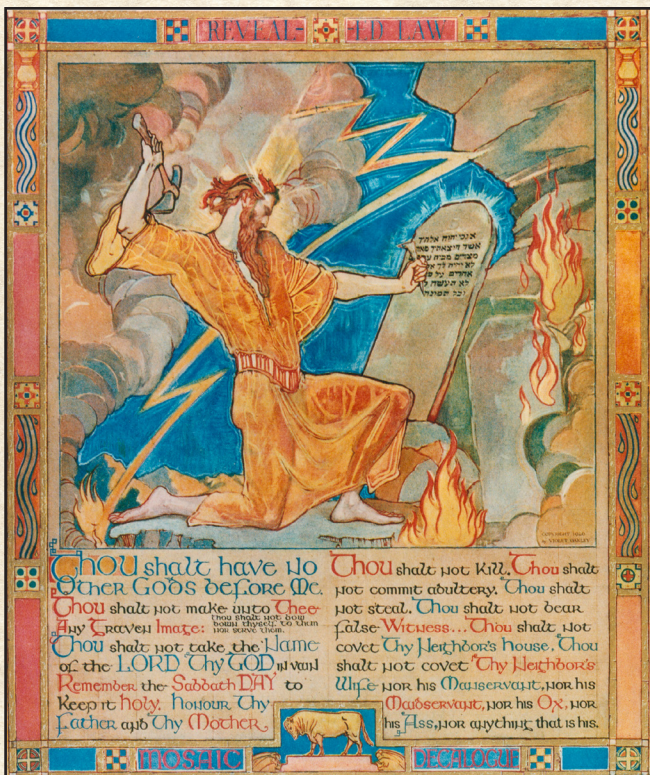 REVEAL- ED LAW
אנכי יהוה
אשר
מצרים מבית
לא יהיה לך
אחרים על
לא תעשה
וכל תמונה
COPYRIGHT
by VIOLET OAKLEY
Thou shalt have no
Other Gods before Me.
Thou shalt not make unto Thee
Any Graven Image: thou shalt not bow
down thyself to them
nor serve them.
Thou shalt not take the Name
of the LORD Thy GOD in vain
Remember the Sabbath DAY to
Keep it holy. Honour Thy
Father and Thy Mother.
Thou shalt not Kill. Thou shalt
not commit adultery. Thou shalt
not steal. Thou shalt not bear
false Witness... Thou shalt not
covet Thy Neighbor's house. Thou
shalt not covet Thy Neighbor's
Wife nor his Manservant, nor his
Maidservant, nor his Ox, nor
his Ass, nor anything that is his.
MOSAIC DECALOGUE